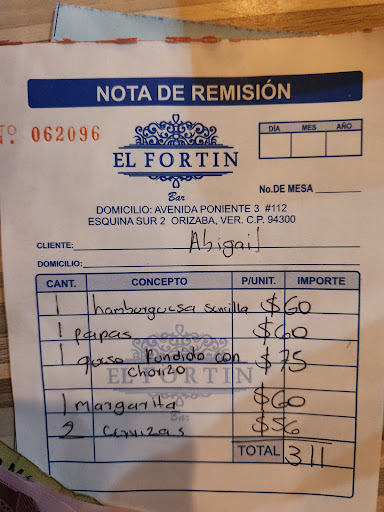 NOTA DE REMISIÓN
Nº. 062096
DÍA MES AÑO
EL FORTIN
Bar
No. DE MESA
DOMICILIO: AVENIDA PONIENTE 3 #112
ESQUINA SUR 2 ORIZABA, VER. C.P. 94300
CLIENTE: Abigail
DOMICILIO:
CANT. CONCEPTO P/UNIT. IMPORTE
1 hamburguesa sencilla $60
1 papas $60
1 queso fundido con $75
chorizo
EL FORTIN
1 margarita $60
Bar
2 cervizas $56
TOTAL 311